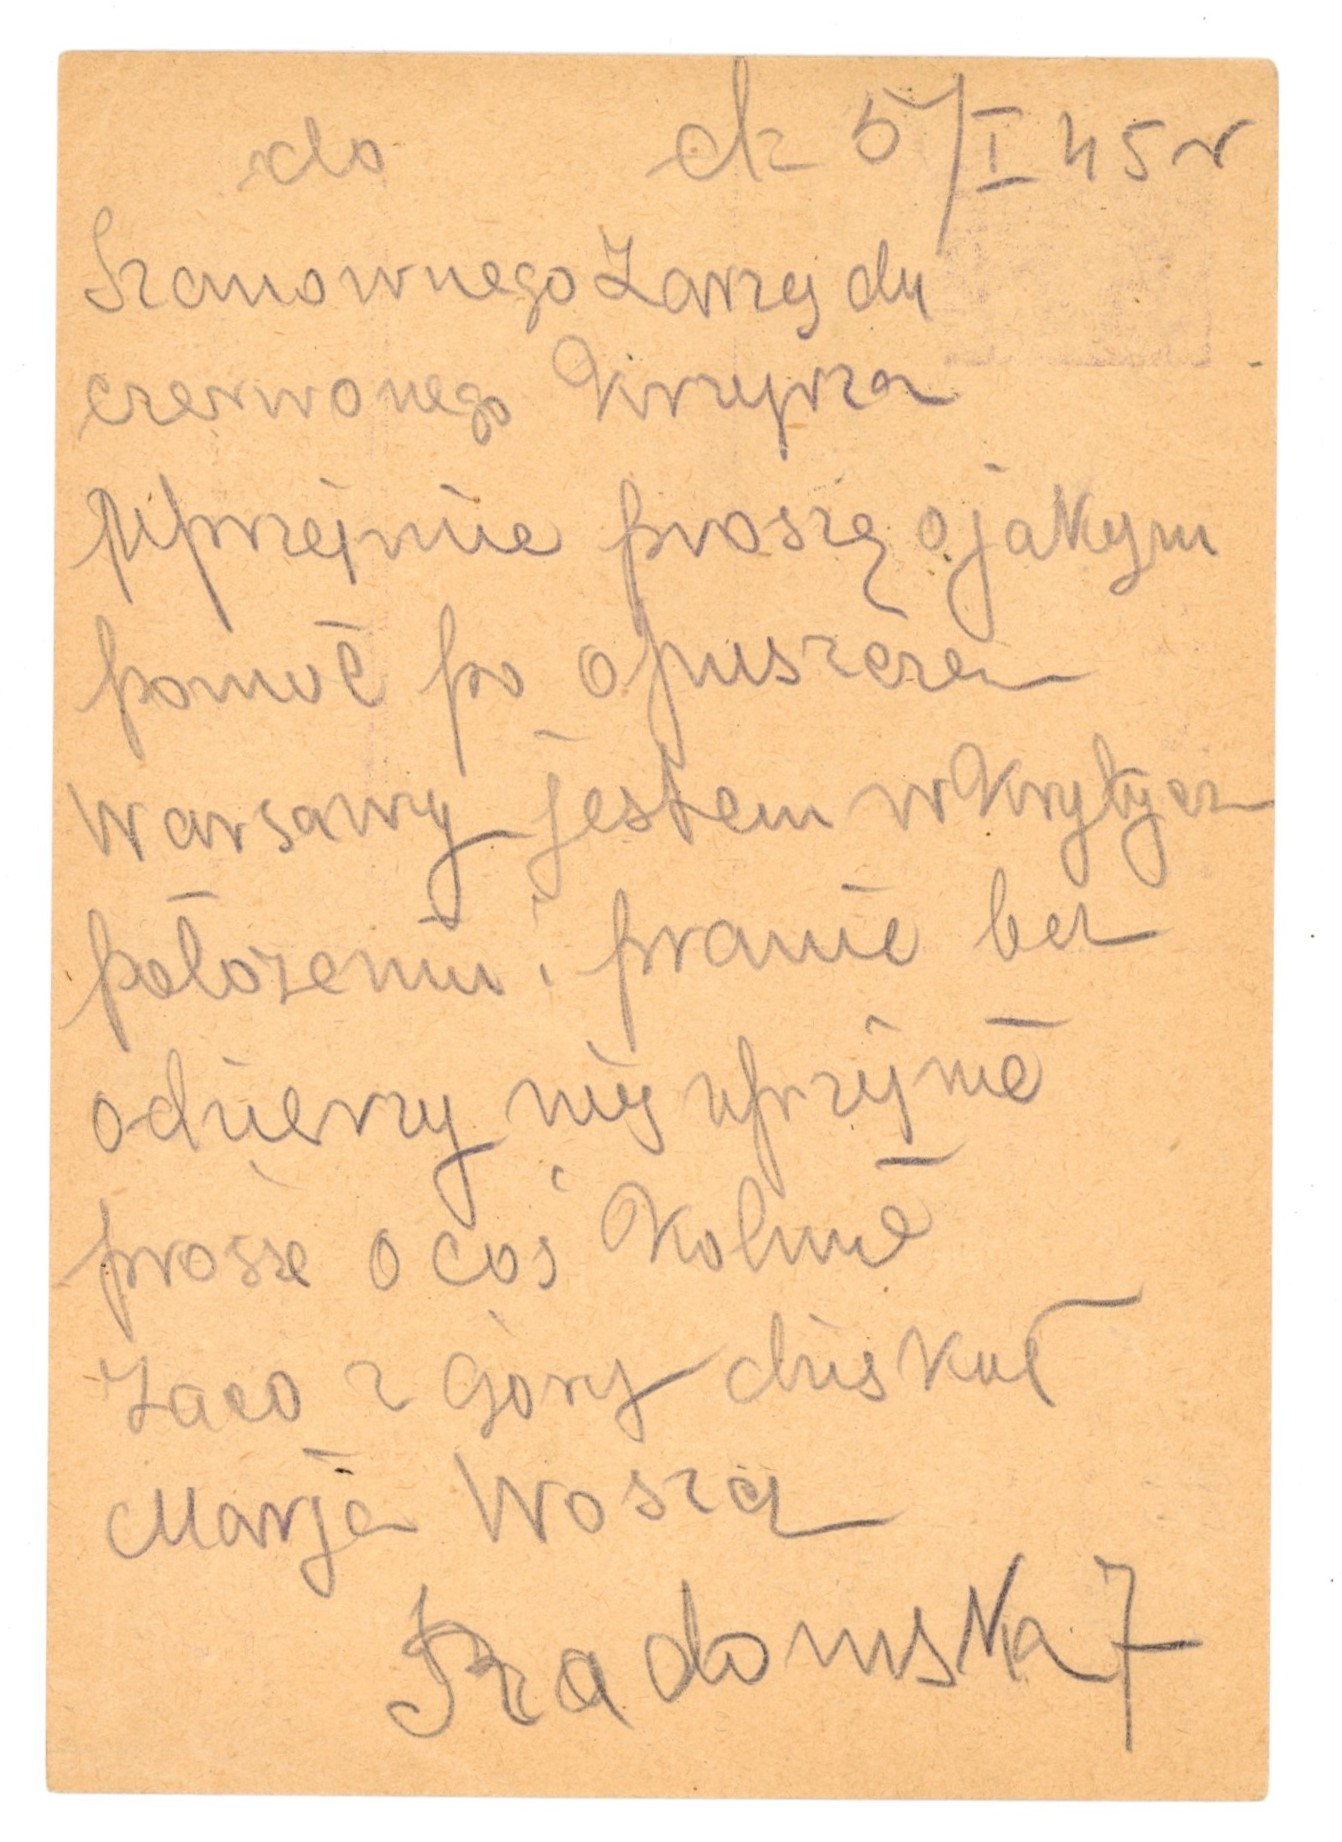 do dn 5/I 45 r
Szanownego Zarzędu
czerwonego Krzyrza
Uprzejmie proszę o jakym
pomoc po opuszcze
Warsawy jestem w Krytycz
położeniu i pranie bez
odzierzy uprzyjmie
prosze o coś Kolwie
Zaco z góry
Marja Wosza
Radomska 7